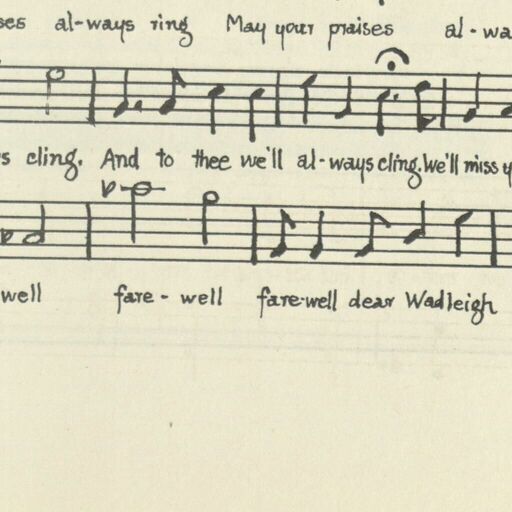 al-ways ring May your praises al-
cling. And to thee we'll al-ways cling. We'll miss
well fare - well fare-well dear Wadleigh